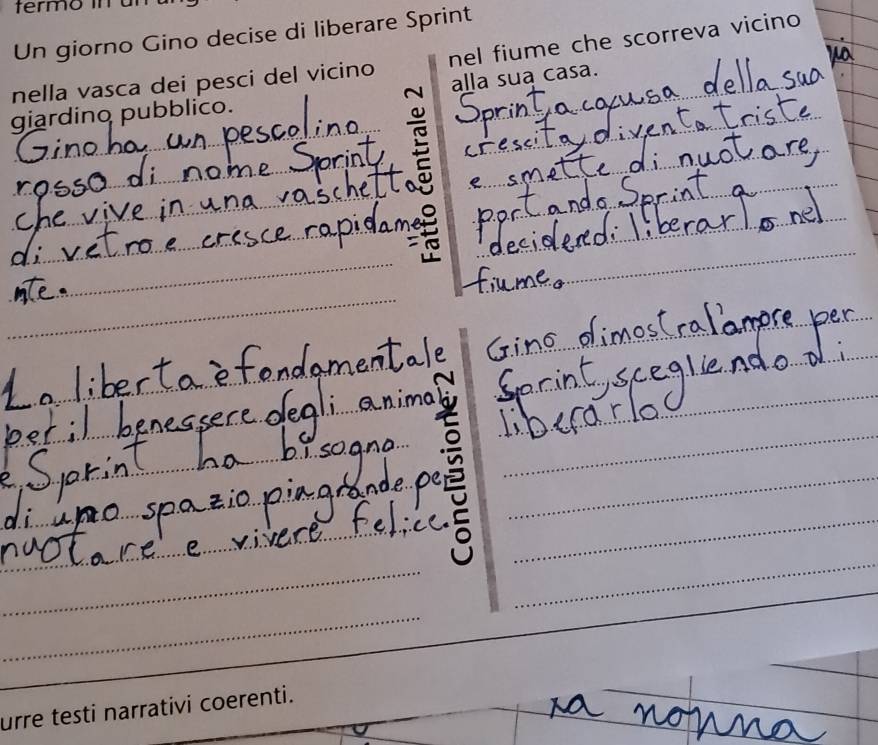 Un giorno Gino decise di liberare Sprint
nella vasca dei pesci del vicino
giardino pubblico.
Gino ha un pescolino
rosso di nome Sprint,
che vive in una vaschetta
di vetro e cresce rapidame
nte.
Fatto centrale 2
nel fiume che scorreva vicino
alla sua casa.
Sprint, a causa della sua
crescita, diventa triste
e smette di nuotare,
portando Sprint a
decidered: liberarlo nel
fiume.
La liberta è fondamentale
per il benessere degli animali
e Sprint ha bisogno
di uno spazio piu grande per
nuotare e vivere felice.
Conclusione 2
Gino dimostra l'amore per
Sprint, scegliendo di
liberarlo
urre testi narrativi coerenti.
nonna